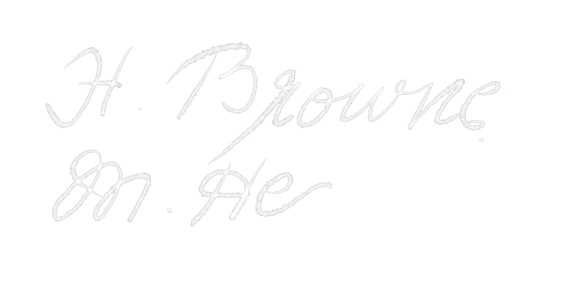 H. Browne
M. He